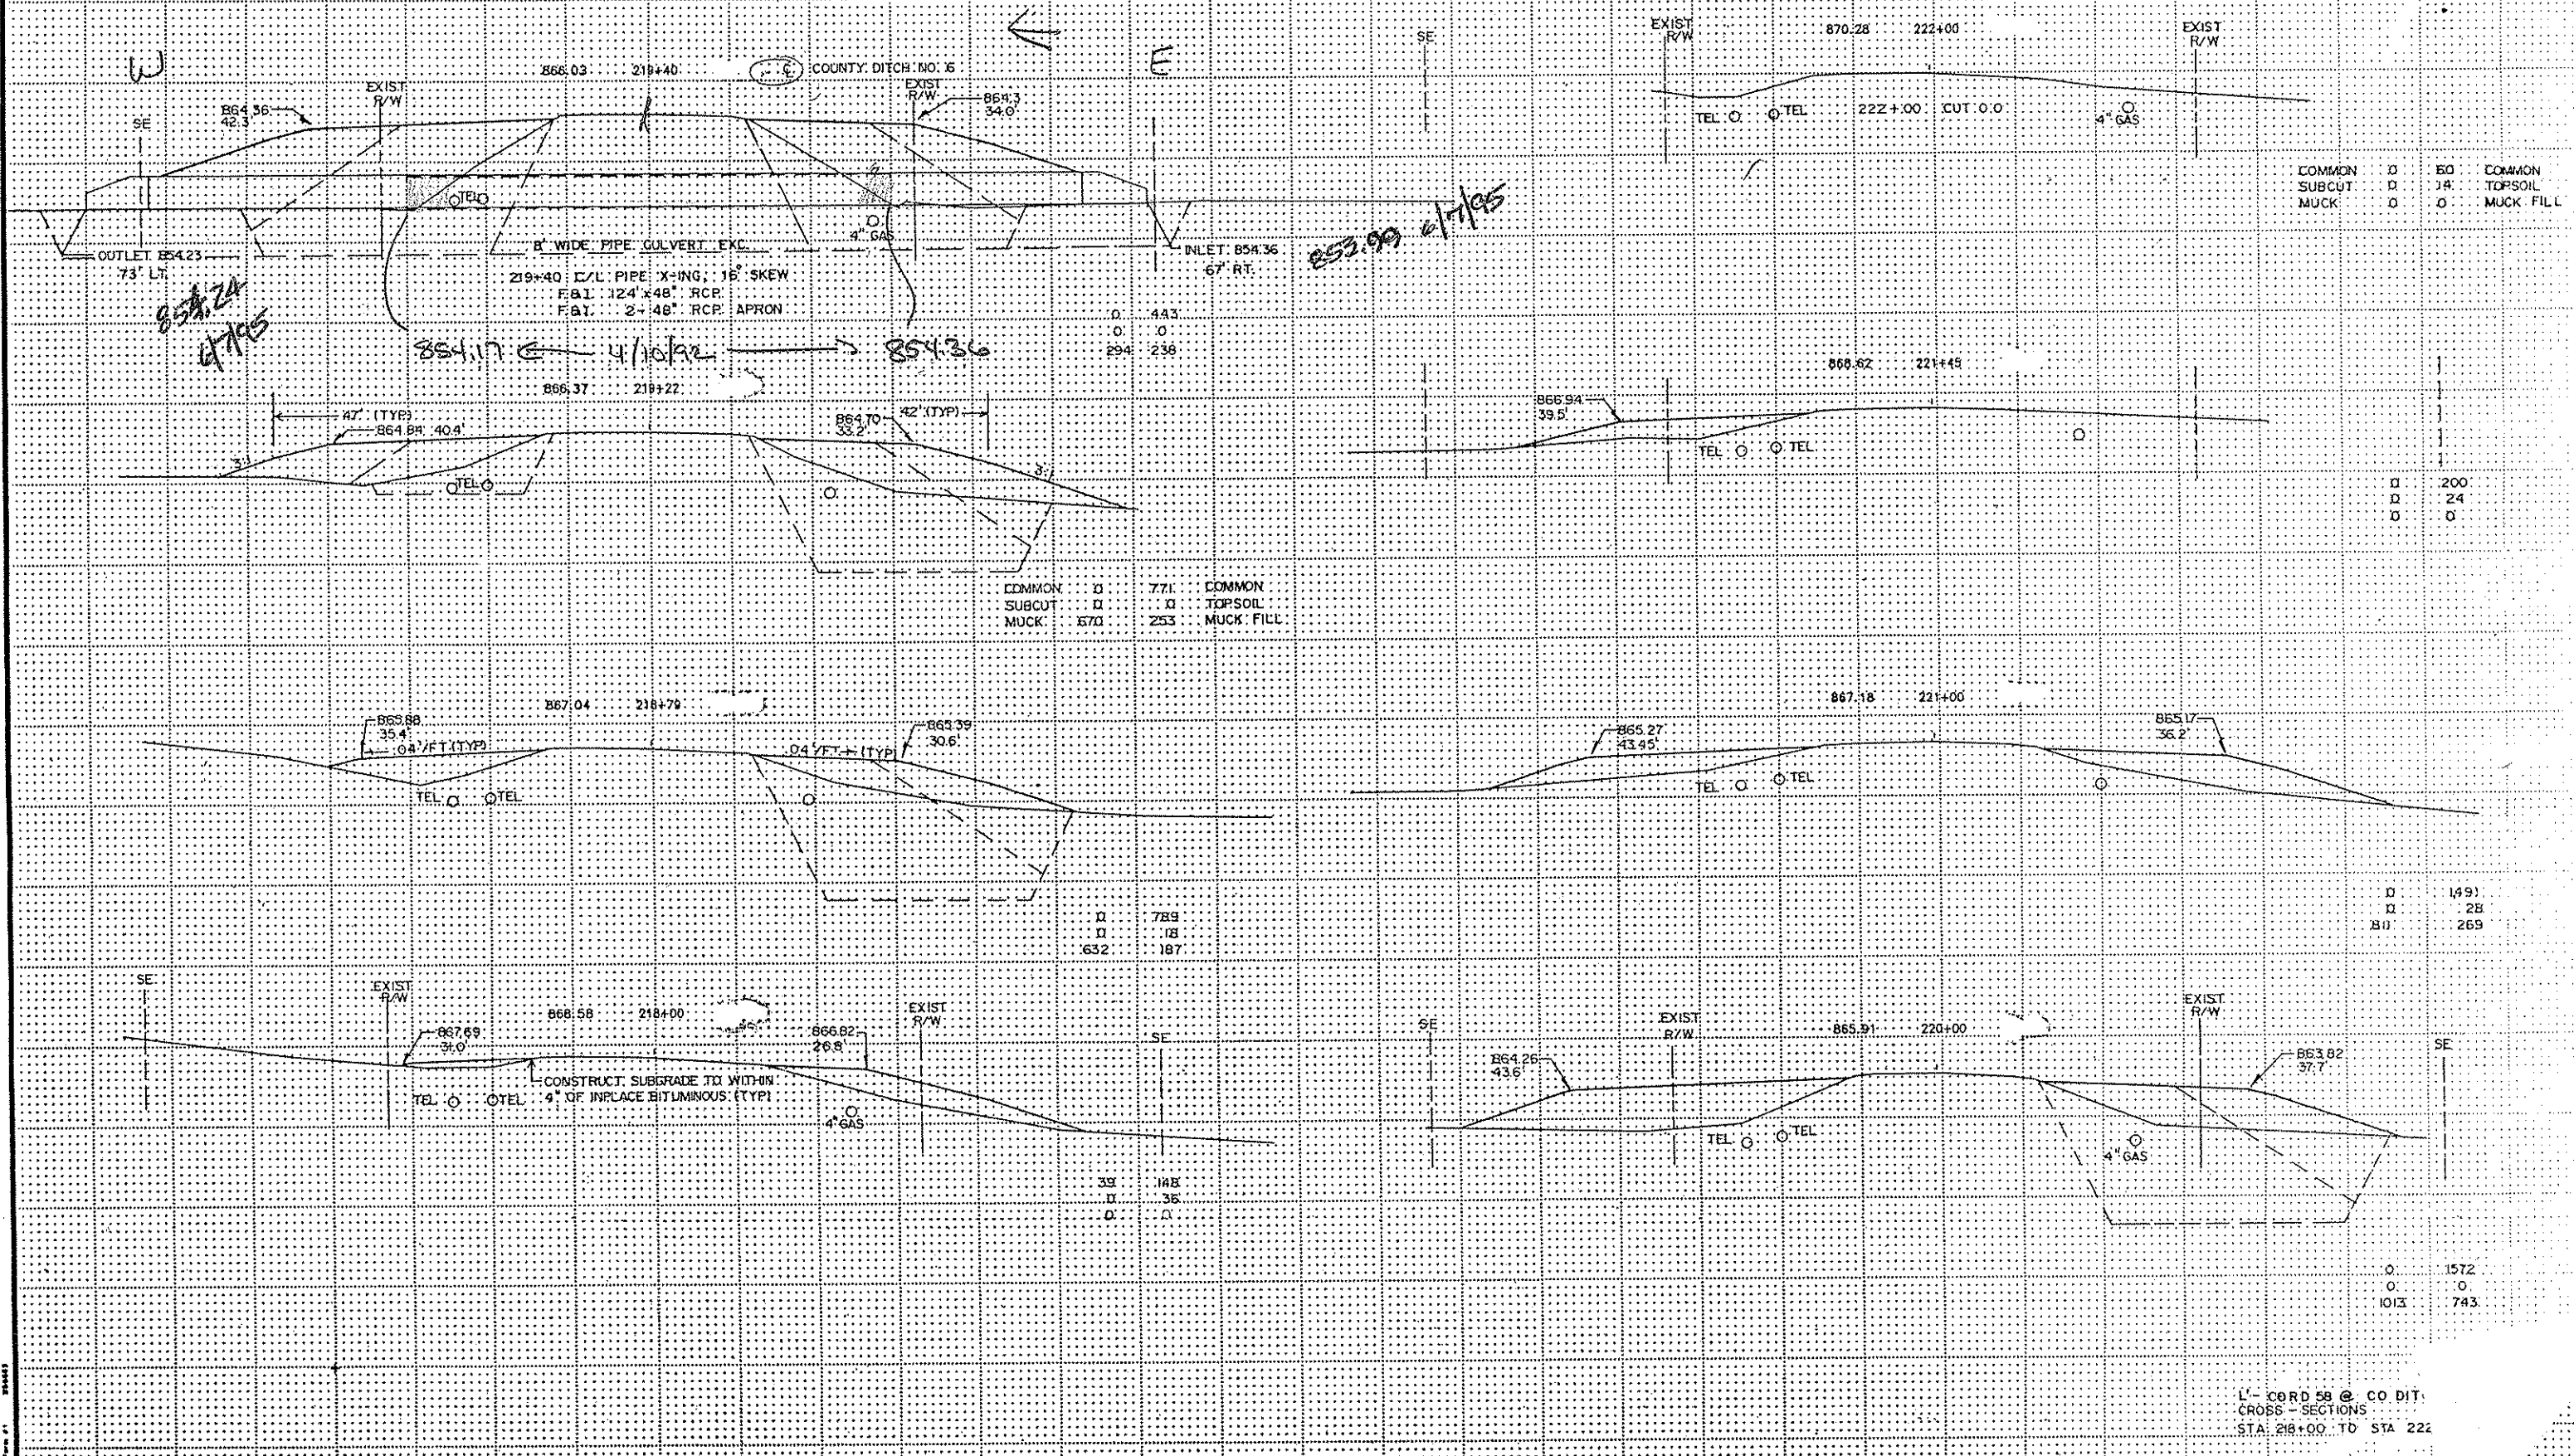 W
E
866.03 219+40 ℄ COUNTY DITCH NO. 6
EXIST
R/W
EXIST
R/W
SE
864.36
42.3'
864.3
34.0'
TEL
4" GAS
8' WIDE PIPE CULVERT EXC.
OUTLET 854.23
73' LT.
INLET 854.36
67' RT.
219+40 C/L PIPE X-ING, 16° SKEW
F.&I. 124'x48" RCP
F.&I. 2-48" RCP APRON
854.24
6/7/95
853.99 6/7/95
0 443
0 0
294 238
854.17 ← 4/10/92 → 854.36
866.37 219+22
47' (TYP)
864.84 40.4'
864.70
33.2'
42' (TYP)
3:1
3:1
TEL
COMMON 0 771 COMMON
SUBCUT 0 0 TOPSOIL
MUCK 670 253 MUCK FILL
867.04 218+79
865.88
35.4'
.04'/FT (TYP)
.04'/FT (TYP)
865.39
30.6'
TEL TEL
0 789
0 18
632 187
SE
EXIST
R/W
868.58 218+00
867.69
31.0'
866.82
26.8'
EXIST
R/W
SE
CONSTRUCT SUBGRADE TO WITHIN
4" OF INPLACE BITUMINOUS (TYP)
TEL TEL
4" GAS
39 148
0 36
0 0
SE
EXIST
R/W
870.28 222+00
EXIST
R/W
TEL TEL
222+00 CUT 0.0
4" GAS
COMMON 0 60 COMMON
SUBCUT 0 14 TOPSOIL
MUCK 0 0 MUCK FILL
868.62 221+45
866.94
39.5'
TEL TEL
0 200
0 24
0 0
867.18 221+00
865.27
43.45'
865.17
36.2'
TEL TEL
0 1,491
0 28
811 269
SE
EXIST
R/W
865.91 220+00
EXIST
R/W
SE
864.26
43.6'
863.82
37.7'
TEL TEL
4" GAS
0 1572
0 0
1013 743
L'- CORD 58 @ CO DIT
CROSS-SECTIONS
STA 218+00 TO STA 222